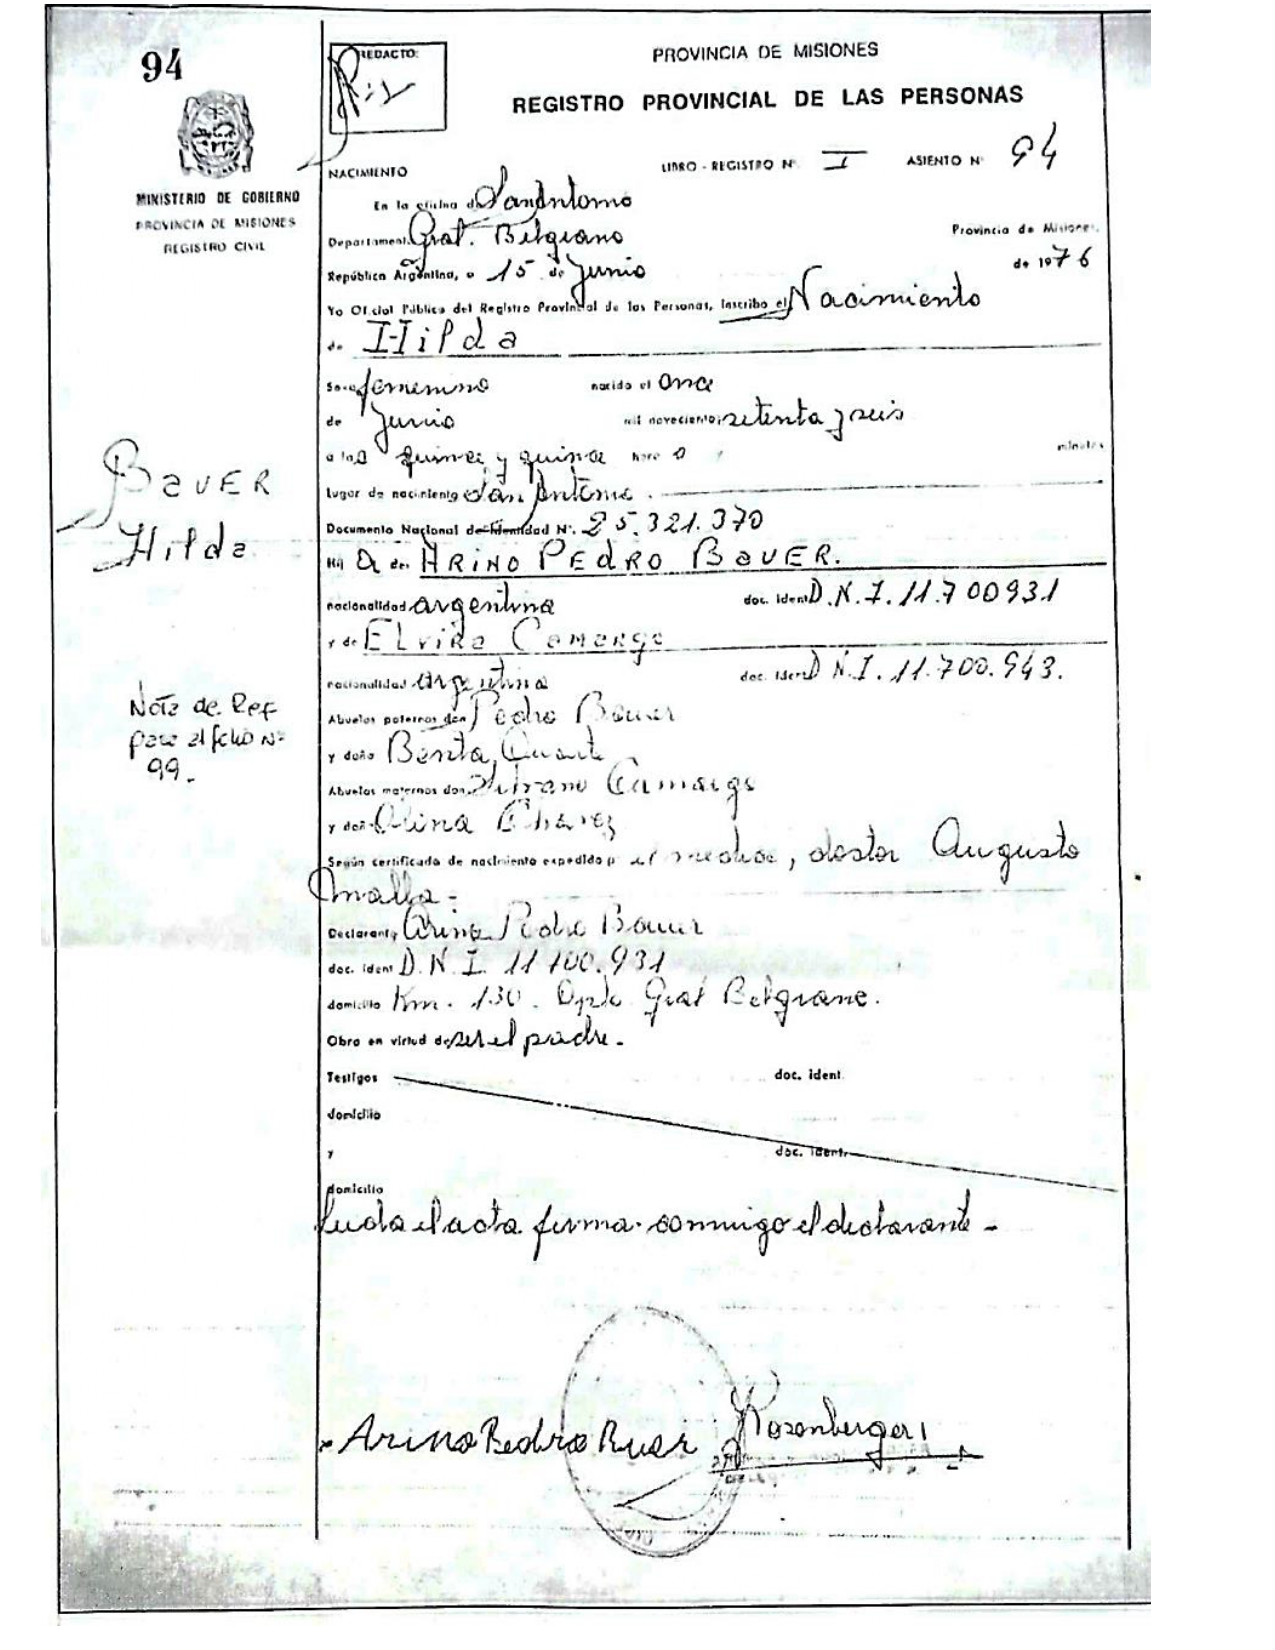 94
REDACTO:
PROVINCIA DE MISIONES
REGISTRO PROVINCIAL DE LAS PERSONAS
MINISTERIO DE GOBIERNO
PROVINCIA DE MISIONES
REGISTRO CIVIL
NACIMIENTO LIBRO - REGISTRO Nº I ASIENTO Nº 94
En la oficina de San Antonio
Departamento Gral. Belgrano Provincia de Misiones,
República Argentina, a 15 de Junio de 1976
Yo Oficial Público del Registro Provincial de las Personas, Inscribo el Nacimiento
de Hilda
Sexo femenino nacido el once
de Junio mil novecientos setenta y seis
a las quince y quince hora minutos
lugar de nacimiento San Antonio.
Documento Nacional de Identidad Nº. 25.321.370
Hij a de: ARINO PEDRO BAUER.
nacionalidad argentina doc. ident D.N.I. 11.700931
y de ELVIRA Camargo
nacionalidad argentina doc. ident D.N.I. 11.700.943.
Abuelos paternos don Pedro Bauer
y doña Benta
Abuelos maternos don Camargo
y doña Chavez
Según certificado de nacimiento expedido p el medico, doctor Augusto
Declarante Arino Pedro Bauer
doc. ident D.N.I. 11.700.931
domicilio Km. 130. Dpto Gral Belgrano.
Obra en virtud de ser el padre.
Testigos doc. ident.
domicilio
y doc. ident.
domicilio
Leida el acta firma conmigo el declarante -
BAUER
Hilda
Nota de Ref
para el folio Nº
99.
Arino Pedro Buer
Rosenberger